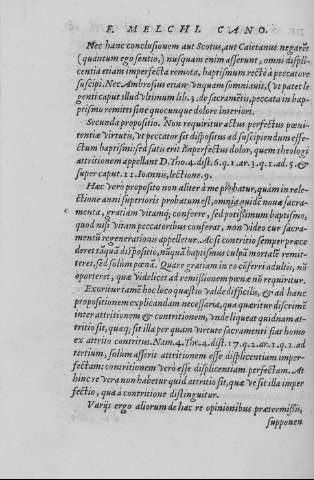 F. MELCHI. CANO.
Nec hanc conclusionem aut Scotus, aut Caietanus negarẽt
(quantum ego sentio,) nusquam enim asserunt, omni displi-
centia etiam imperfecta remota, baptismum rectè à peccatore
suscipi. Nec Ambrosius etiam vnquam somniauit, (vt patet le
genti caput illud vltimum lib. 3. de sacramẽtis, peccata in bap-
tismo remitti sine quocunque dolore interiori.
Secunda propositio. Non requiritur actus perfectus pœni-
tentiæ virtutis, vt peccator sit dispositus ad suscipiendum effe-
ctum baptismi: sed satis erit imperfectus dolor, quem theologi
attritionem appellant D. Tho. 4. dist. 6. q. 1. ar. 3. q. 1. ad. 5. &
super caput. 11. Ioannis, lectione. 9.
Hæc vero propositio non aliter à me probatur, quàm in rele-
ctione anni superioris probatum est, omnia quidẽ nouæ sacra-
menta, gratiam vitamq; conferre, sed potissimum baptismo,
quod nisi vitam peccatoribus conferat, non video cur sacra-
mentũ regenerationis appelletur. Ac si contritio semper præce
deret tãquã dispositio, nũquã baptismus culpã mortalẽ remit-
teret, sed solum pœnã. Quare gratiam iis cõferri adultis, nõ
oporteret, quæ videlicet ad remissionem pœnæ nõ requiritur.
Exoritur tamẽ hoc loco quæstio valde difficilis, & ad hanc
propositionem explicandam necessaria, qua quæritur discrimẽ
inter attritionem & contritionem, vnde liqueat quidnam at-
tritio sit, quæq; sit illa per quam virtute sacramenti fiat homo
ex attrito contritus. Nam. 4. Tho. 4. dist. 17. q. 2. ar. 1. q. 2. ad
tertium, solum asserit attritionem esse displicentiam imper-
fectam: contritionem vero esse displicentiam perfectam. At
hinc re vera non habetur quid attritio sit, quæ ve sit illa imper
fectio, qua à contritione distinguitur.
Varijs ergo aliorum de hac re opinionibus prætermissis,
supponen